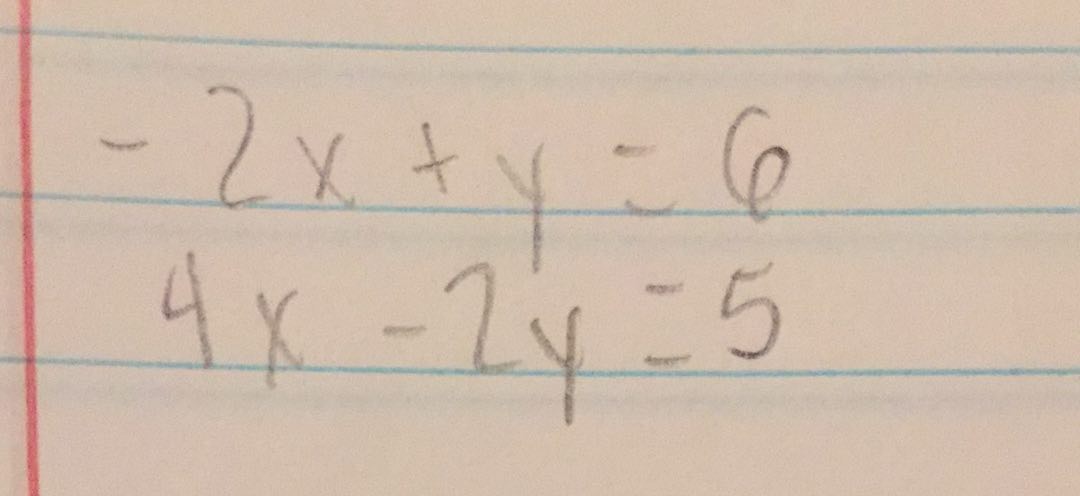 - 2x + y = 6
4x - 2y = 5